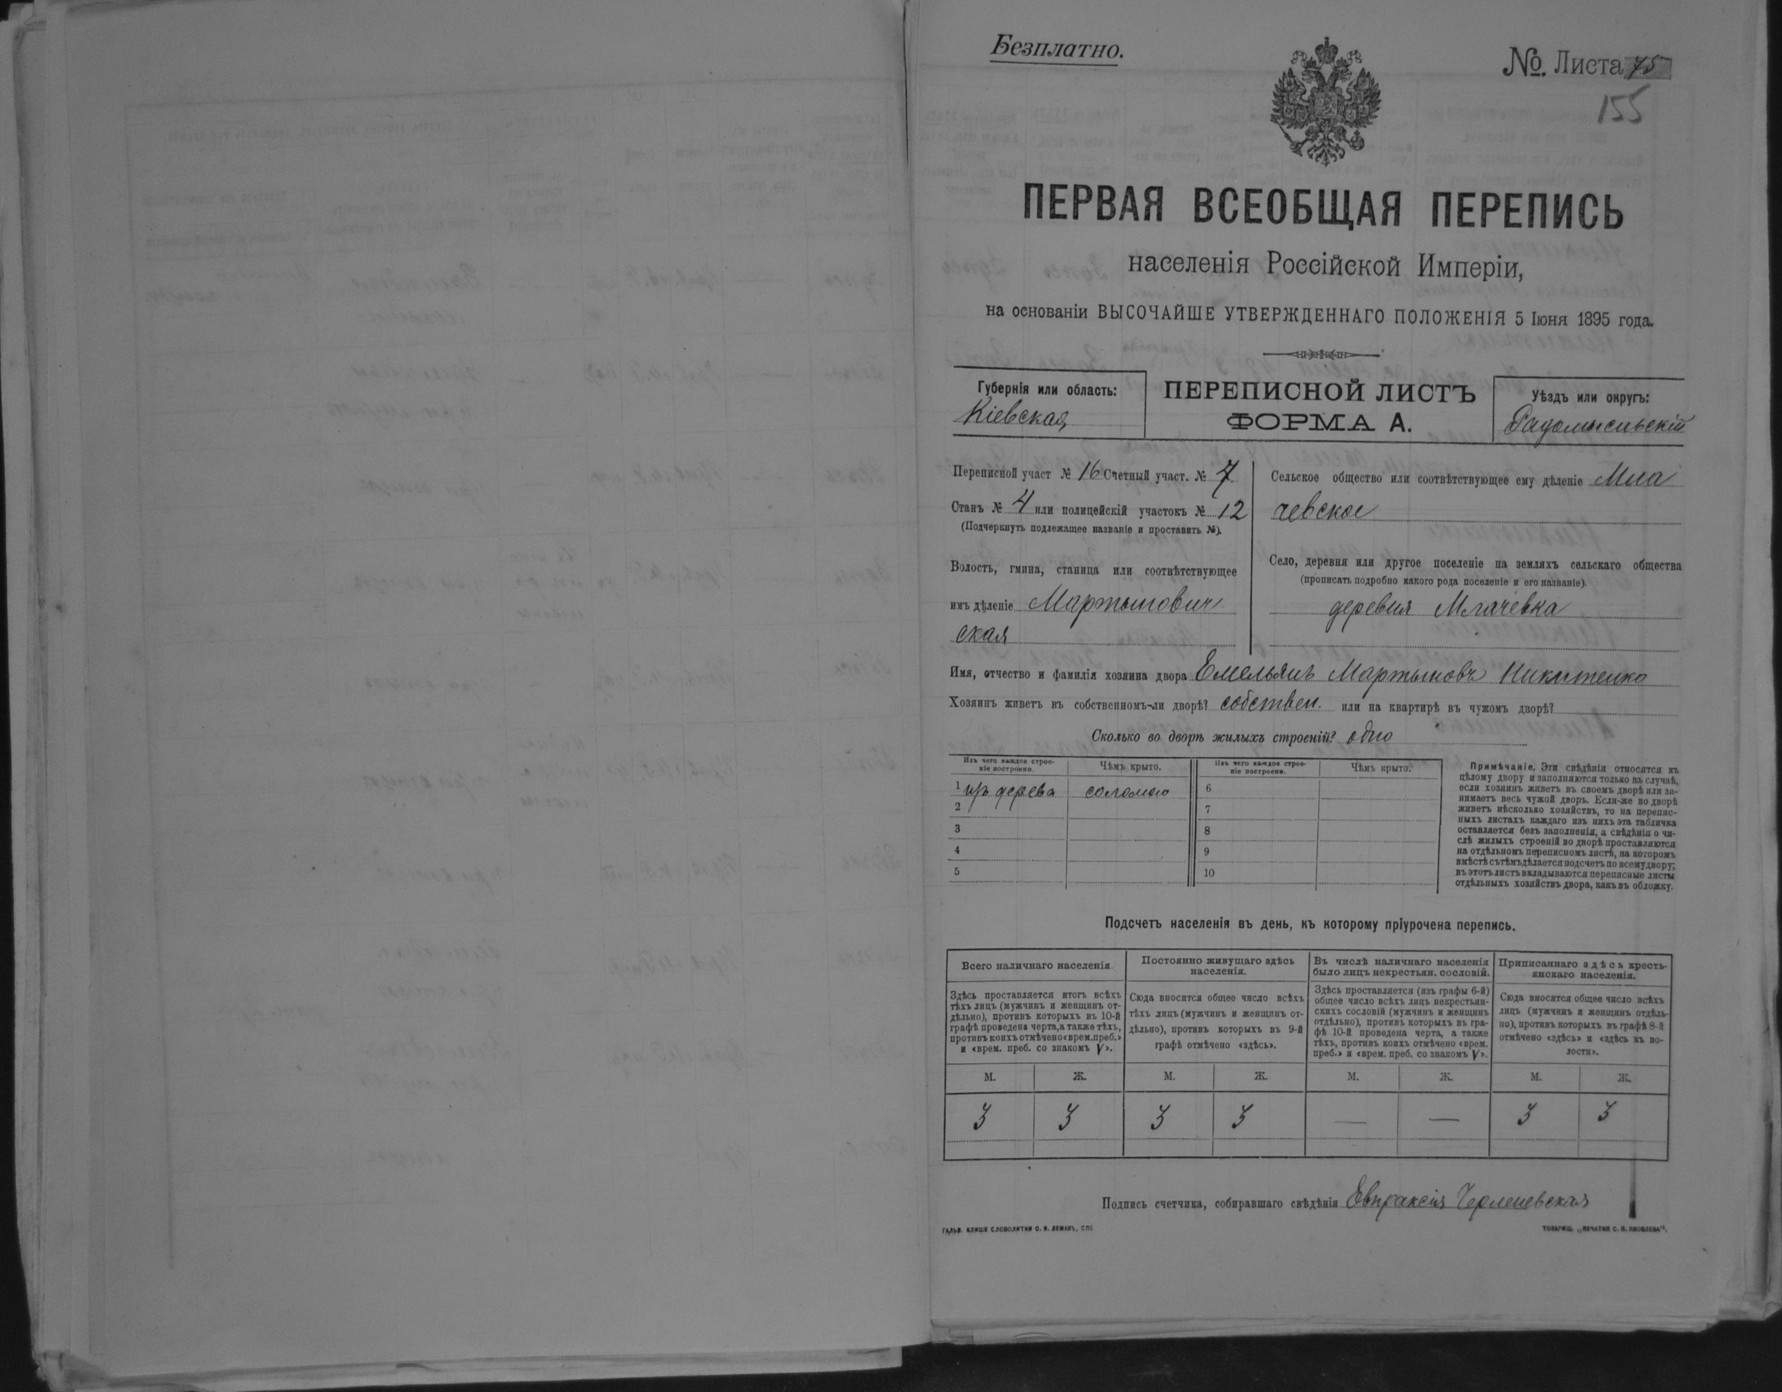 Безплатно.
№. Листа 75
155
ПЕРВАЯ ВСЕОБЩАЯ ПЕРЕПИСЬ
населенія Россійской Имперіи,
на основаніи ВЫСОЧАЙШЕ УТВЕРЖДЕННАГО ПОЛОЖЕНІЯ 5 Іюня 1895 года.
Губернія или область:
Кіевская
ПЕРЕПИСНОЙ ЛИСТЪ
ФОРМА А.
Уѣздъ или округъ:
Радомысльскій
Переписной участ № 16 Счетный участ. № 7
Станъ № 4 или полицейскій участокъ № 12
(Подчеркнуть подлежащее названіе и проставить №).
Волость, гмина, станица или соотвѣтствующее
имъ дѣленіе Мартынович
ская
Сельское общество или соотвѣтствующее ему дѣленіе Мла
чевское
Село, деревня или другое поселеніе на земляхъ сельскаго общества
(прописать подробно какого рода поселеніе и его названіе).
деревня Млачевка
Имя, отчество и фамилія хозяина двора Емельянъ Мартыновъ Никитенко
Хозяинъ живетъ въ собственномъ-ли дворѣ? собствен. или на квартирѣ въ чужомъ дворѣ?
Сколько во дворѣ жилыхъ строеній? одно
Изъ чего каждое строе-
ніе построено.
Чѣмъ крыто.
Изъ чего каждое строе-
ніе построено.
Чѣмъ крыто.
1 изъ дерева соломою 6
2 7
3 8
4 9
5 10
Примѣчаніе. Эти свѣдѣнія относятся къ
цѣлому двору и заполняются только въ случаѣ,
если хозяинъ живетъ въ своемъ дворѣ или за-
нимаетъ весь чужой дворъ. Если-же во дворѣ
живетъ нѣсколько хозяйствъ, то на перепис-
ныхъ листахъ каждаго изъ нихъ эта табличка
оставляется безъ заполненія, а свѣдѣнія о чи-
слѣ жилыхъ строеній во дворѣ проставляются
на отдѣльномъ переписномъ листѣ, на которомъ
вмѣстѣ съ тѣмъ дѣлается подсчетъ по всему двору;
въ этотъ листъ вкладываются переписные листы
отдѣльныхъ хозяйствъ двора, какъ въ обложку.
Подсчетъ населенія въ день, къ которому пріурочена перепись.
Всего наличнаго населенія
Здѣсь проставляется итогъ всѣхъ
тѣхъ лицъ (мужчинъ и женщинъ от-
дѣльно), противъ которыхъ въ 10-й
графѣ проведена черта, а также тѣхъ,
противъ коихъ отмѣчено «врем. преб.»
и «врем. преб. со знакомъ V».
Постоянно живущаго здѣсь
населенія.
Сюда вносится общее число всѣхъ
тѣхъ лицъ (мужчинъ и женщинъ от-
дѣльно), противъ которыхъ въ 9-й
графѣ отмѣчено «здѣсь».
Въ числѣ наличнаго населенія
было лицъ некрестьян. сословій.
Здѣсь проставляется (изъ графы 6-й)
общее число всѣхъ лицъ некрестьян-
скихъ сословій (мужчинъ и женщинъ
отдѣльно), противъ которыхъ въ гра-
фѣ 10-й проведена черта, а также
тѣхъ, противъ коихъ отмѣчено «врем.
преб.» и «врем. преб. со знакомъ V».
Приписаннаго здѣсь кресть-
янскаго населенія.
Сюда вносится общее число всѣхъ
лицъ (мужчинъ и женщинъ отдѣль-
но), противъ которыхъ въ графѣ 8-й
отмѣчено «здѣсь» и «здѣсь къ во-
лости».
М. Ж. М. Ж. М. Ж. М. Ж.
3 3 3 3 — — 3 3
Подпись счетчика, собиравшаго свѣдѣнія Евпраксія
ГАЛЬВ. КЛИШЕ СЛОВОЛИТНИ О. И. ЛЕМАНЪ, СПБ
ТОВАРИЩ. „ПЕЧАТНЯ С. П. ЯКОВЛЕВА“.